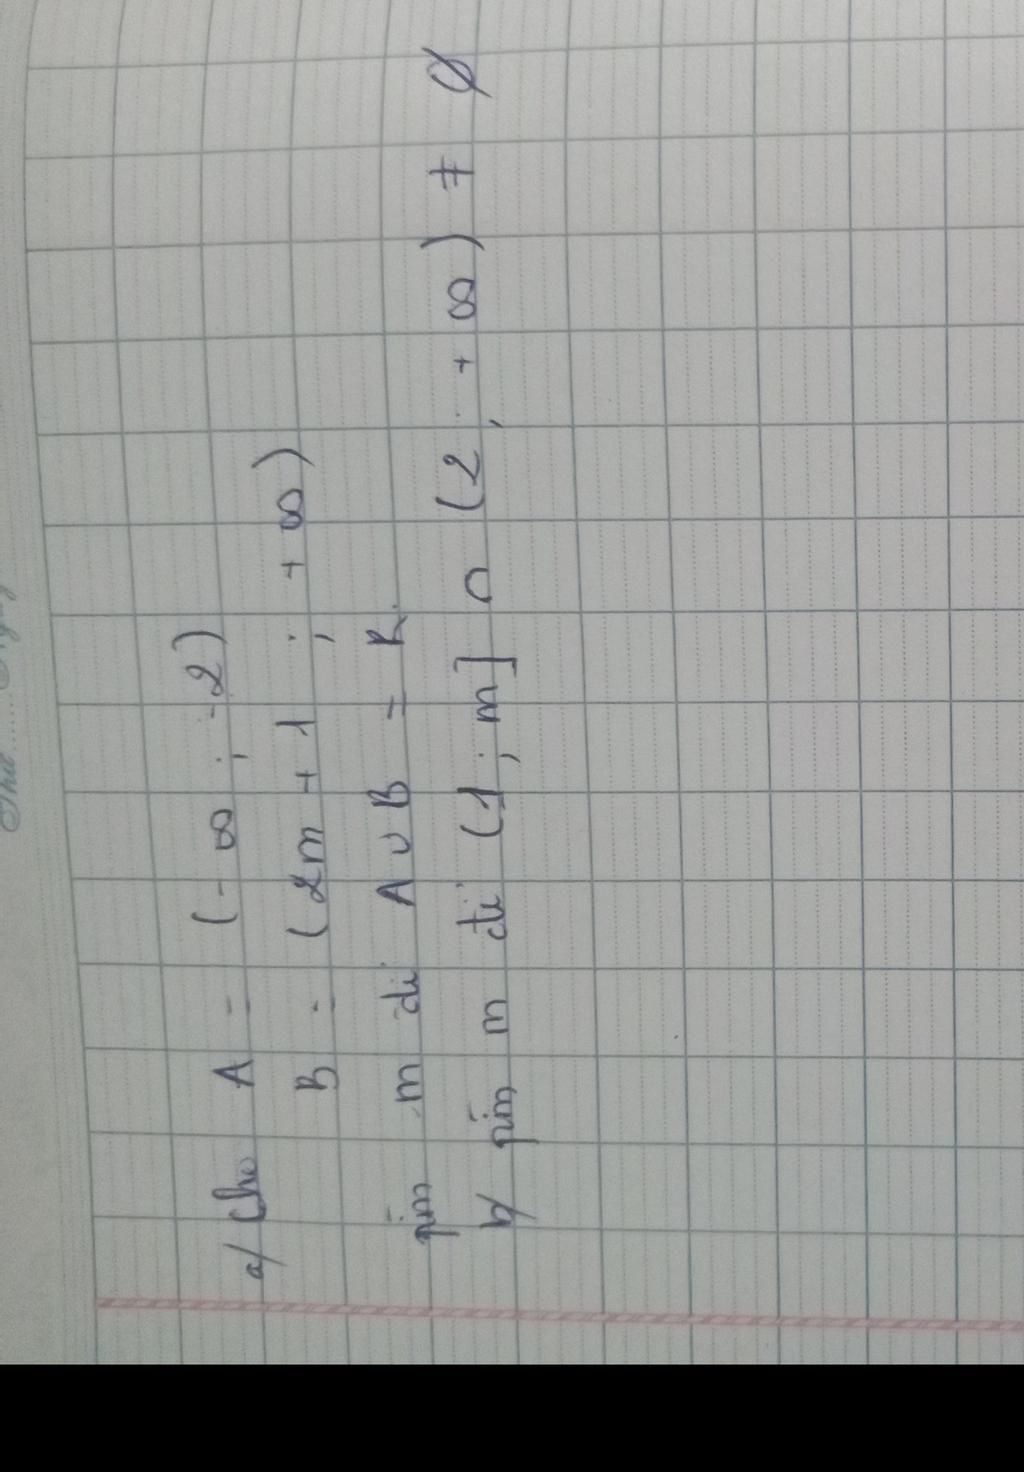 a/ Cho A = (-∞ ; -2)
B = (2m + 1 ; +∞)
tìm m để A ∪ B = R.
b/ tìm m để (1 ; m] ∩ (2 ; +∞) ≠ ∅